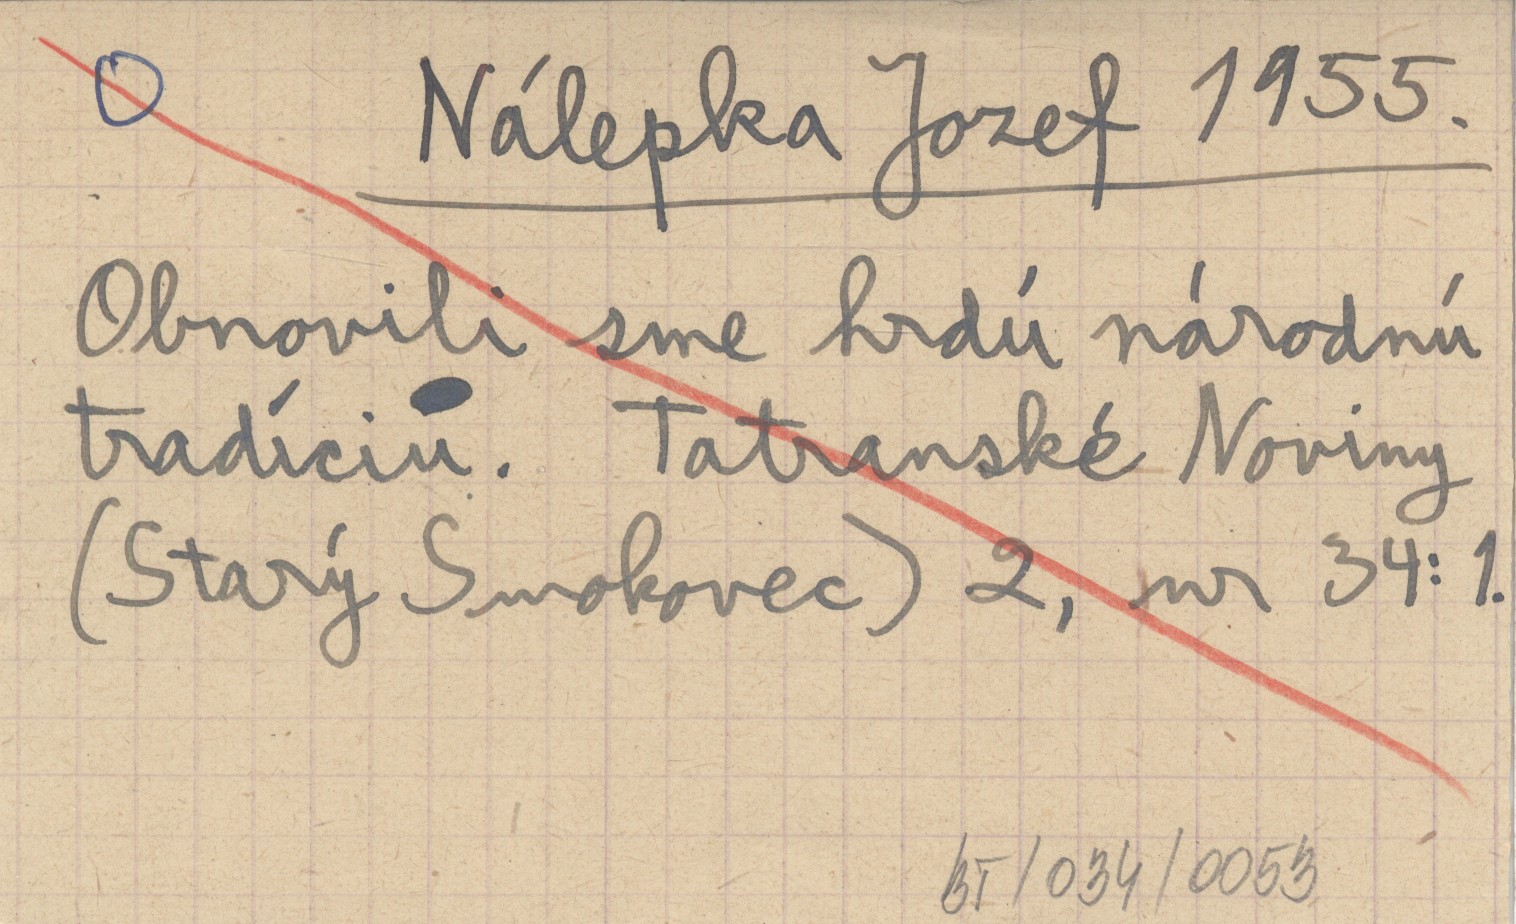 O Nálepka Jozef 1955.
Obnovili sme hrdú národnú
tradíciu. Tatranské Noviny
(Starý Smokovec) 2, nr 34: 1.
BT/034/0053